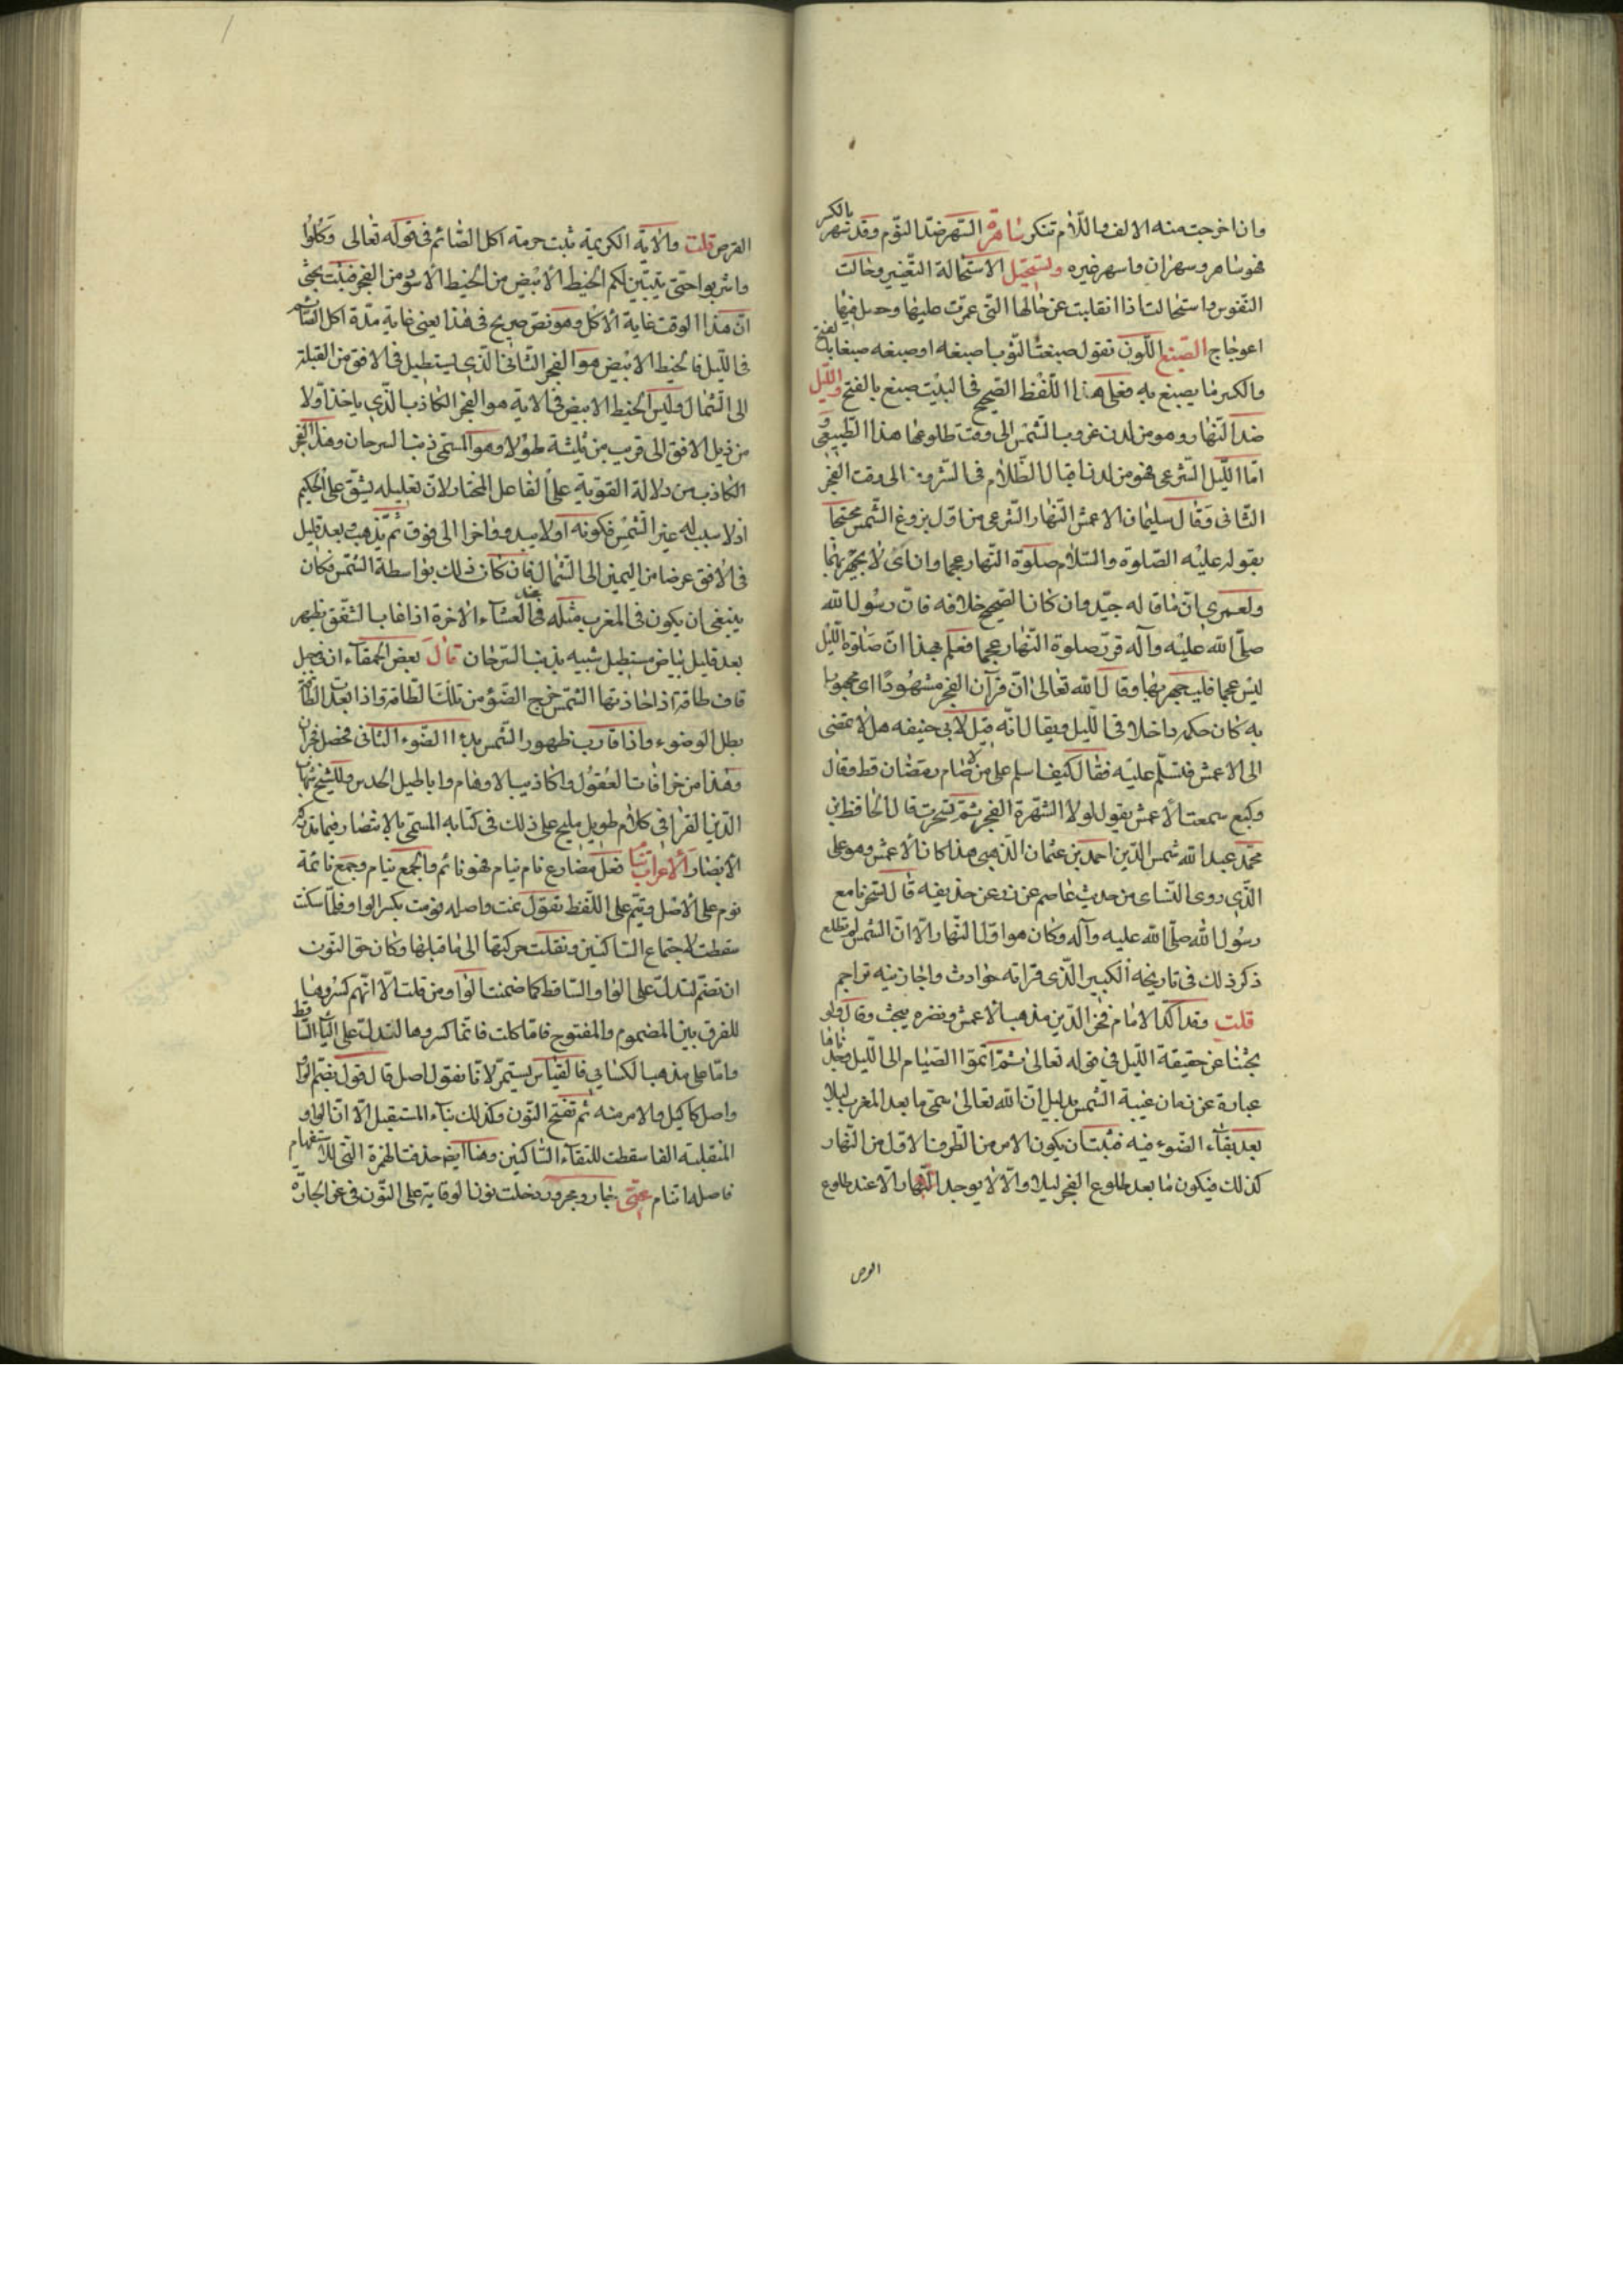 وان اخرجت منه الالف واللام تنكر ساهرة السهر ضد النوم وقد سهر بالكسر
فهو ساهر وسهران واسهر غيره وتستحيل الاستحالة التغيير وحالت
النفوس واستحالت اذا انقلبت عن حالها التى عمرت عليها وحصل فيها
اعوجاج الصبغ اللون تقول صبغت الثوب اصبغه اوصبغه صبغا بالفتح
والكسر ما يصبغ به فعلى هذا اللفظ الصحيح فى البيت صبغ بالفتح والليل
ضد النهار وهو من لدن غروب الشمس الى وقت طلوعها هذا الطبيعى و
اما الليل الشرعى فهو من لدن اقبال الظلام فى الشروق الى وقت الفجر
الثانى وقال سليمان الاعمش النهار الشرعى من اول بزوغ الشمس محتجا
بقوله عليه الصلوة والسلام صلوة النهار عجما وان اى لا يجهر بها
ولعمرى ان ما قاله جيد وان كان الصحيح خلافه فان رسول الله
صلى الله عليه وآله قرن صلوة النهار عجما فعلم بهذا ان صلوة الليل
ليس عجما فليجهر بها وقال الله تعالى ان قرآن الفجر مشهودا اى مجهوبا
به كان حكمه داخلا فى الليل ويقال انه قيل لابى حنيفه هلا تمضى
الى الاعمش فتسلم عليه فقال كيف اسلم على من لا صام رمضان قط وقال
وكيع سمعت الاعمش يقول لولا الشهرة الفجر ثم تسحرت قال الحافظ بن
محمد عبد الله شمس الدين احمد بن عثمان الذهبى هذا كان الاعمش وهو على
الذى روى النساى من حديث عاصم عن زر عن حذيفه قال تسحرنا مع
رسول الله صلى الله عليه وآله وكان هو اول النهار الا ان الشمس لم تطلع
ذكر ذلك فى تاريخه الكبير الذى قراته حوادث واجازنيه تراجم
قلت وقد اكد الامام فخر الدين مذهب الاعمش ونصره ببحث وقال ولو
بحثنا عن حقيقة الليل فى قوله تعالى ثم اتموا الصيام الى الليل وجدناها
عبارة عن زمان غيبة الشمس بدليل ان الله تعالى سمى ما بعد المغرب ليلا
بعد بقاء الضوء فيه فثبت ان يكون الامر من الطرف الاول من النهار
كذلك فيكون ما بعد طلوع الفجر ليلا والا لا يوجد النهار الا عند طلوع
القرص
القرص قلت والاية الكريمة ثبت حرمة اكل الصائم فى قوله تعالى وكلوا
واشربوا حتى يتبين لكم الخيط الابيض من الخيط الاسود من الفجر فثبت بحتى
ان هذا الوقت غاية الاكل وهو نص صريح فى هذا يعنى غاية مدة اكل الصائم
فى الليل فالخيط الابيض هو الفجر الثانى الذى يستطيل فى الافق من القبلة
الى الشمال وليس الخيط الابيض فى الاية هو الفجر الكاذب الذى ياخذ اولا
من ذيل الافق الى قريب من ثلثه طولا وهو المسمى ذنب السرحان وهذا الفجر
الكاذب من دلالة القوية على الفاعل المختار لان تعليله يشق على الحكيم
اذ لا سبب له غير الشمس فكونه اولا يبدو واخرا الى فوق ثم يذهب وبعد قليل
فى الافق عرضا من اليمين الى الشمال فان كان ذلك بواسطة الشمس فكان
ينبغى ان يكون فى المغرب مثله عند فى العشاء الاخرة اذا غاب الشفق يظهر
بعد قليل بياض مستطيل شبيه بذنب السرحان قال بعض الحمقاء ان فى جبل
قاف طاقة اذا حاذتها الشمس خرج الضوء من تلك الطاقة واذا بعدت الطاقة
بطل الوضوء واذا قارب ظهور الشمس بدء الضوء الثانى فحصل فجران
وهذا من خرافات العقول واكاذيب الاوهام واباطيل الحدس وللشيخ شهاب
الدين القرافى كلام طويل مليح على ذلك فى كتابه المسمى بالاستبصار فيما تدركه
الابصار الاعراب تنام فعل مضارع نام ينام فهو نائم والجمع نيام وجمع نائمة
نوم على الاصل ونيم على اللفظ تقول نمت واصله نومت بكسر الواو فلما سكنت
سقطت لاجتماع الساكنين ونقلت حركتها الى ما قبلها وكان حق النون
ان تضم لتدل على الواو الساقط كما ضمنت الواو من قلت الا انهم كسروها
للفرق بين المضموم والمفتوح فاما كلت فانما كسروها لتدل على اليا الساقط
واما على مذهب الكسايى فالقياس يستمر لانا نقول اصل قال قول بضم الواو
واصل كا كيل والامر منه نم تفتح النون وكذلك بناء المستقبل الا ان الواو
المنقلبة الفا سقطت للتقاء الساكنين وهنا ايضا حذفت الهمزة التى للاستفهام
فاصله اتنام عنى جار ومجرور دخلت نون الوقاية على النون فى عن الجارة